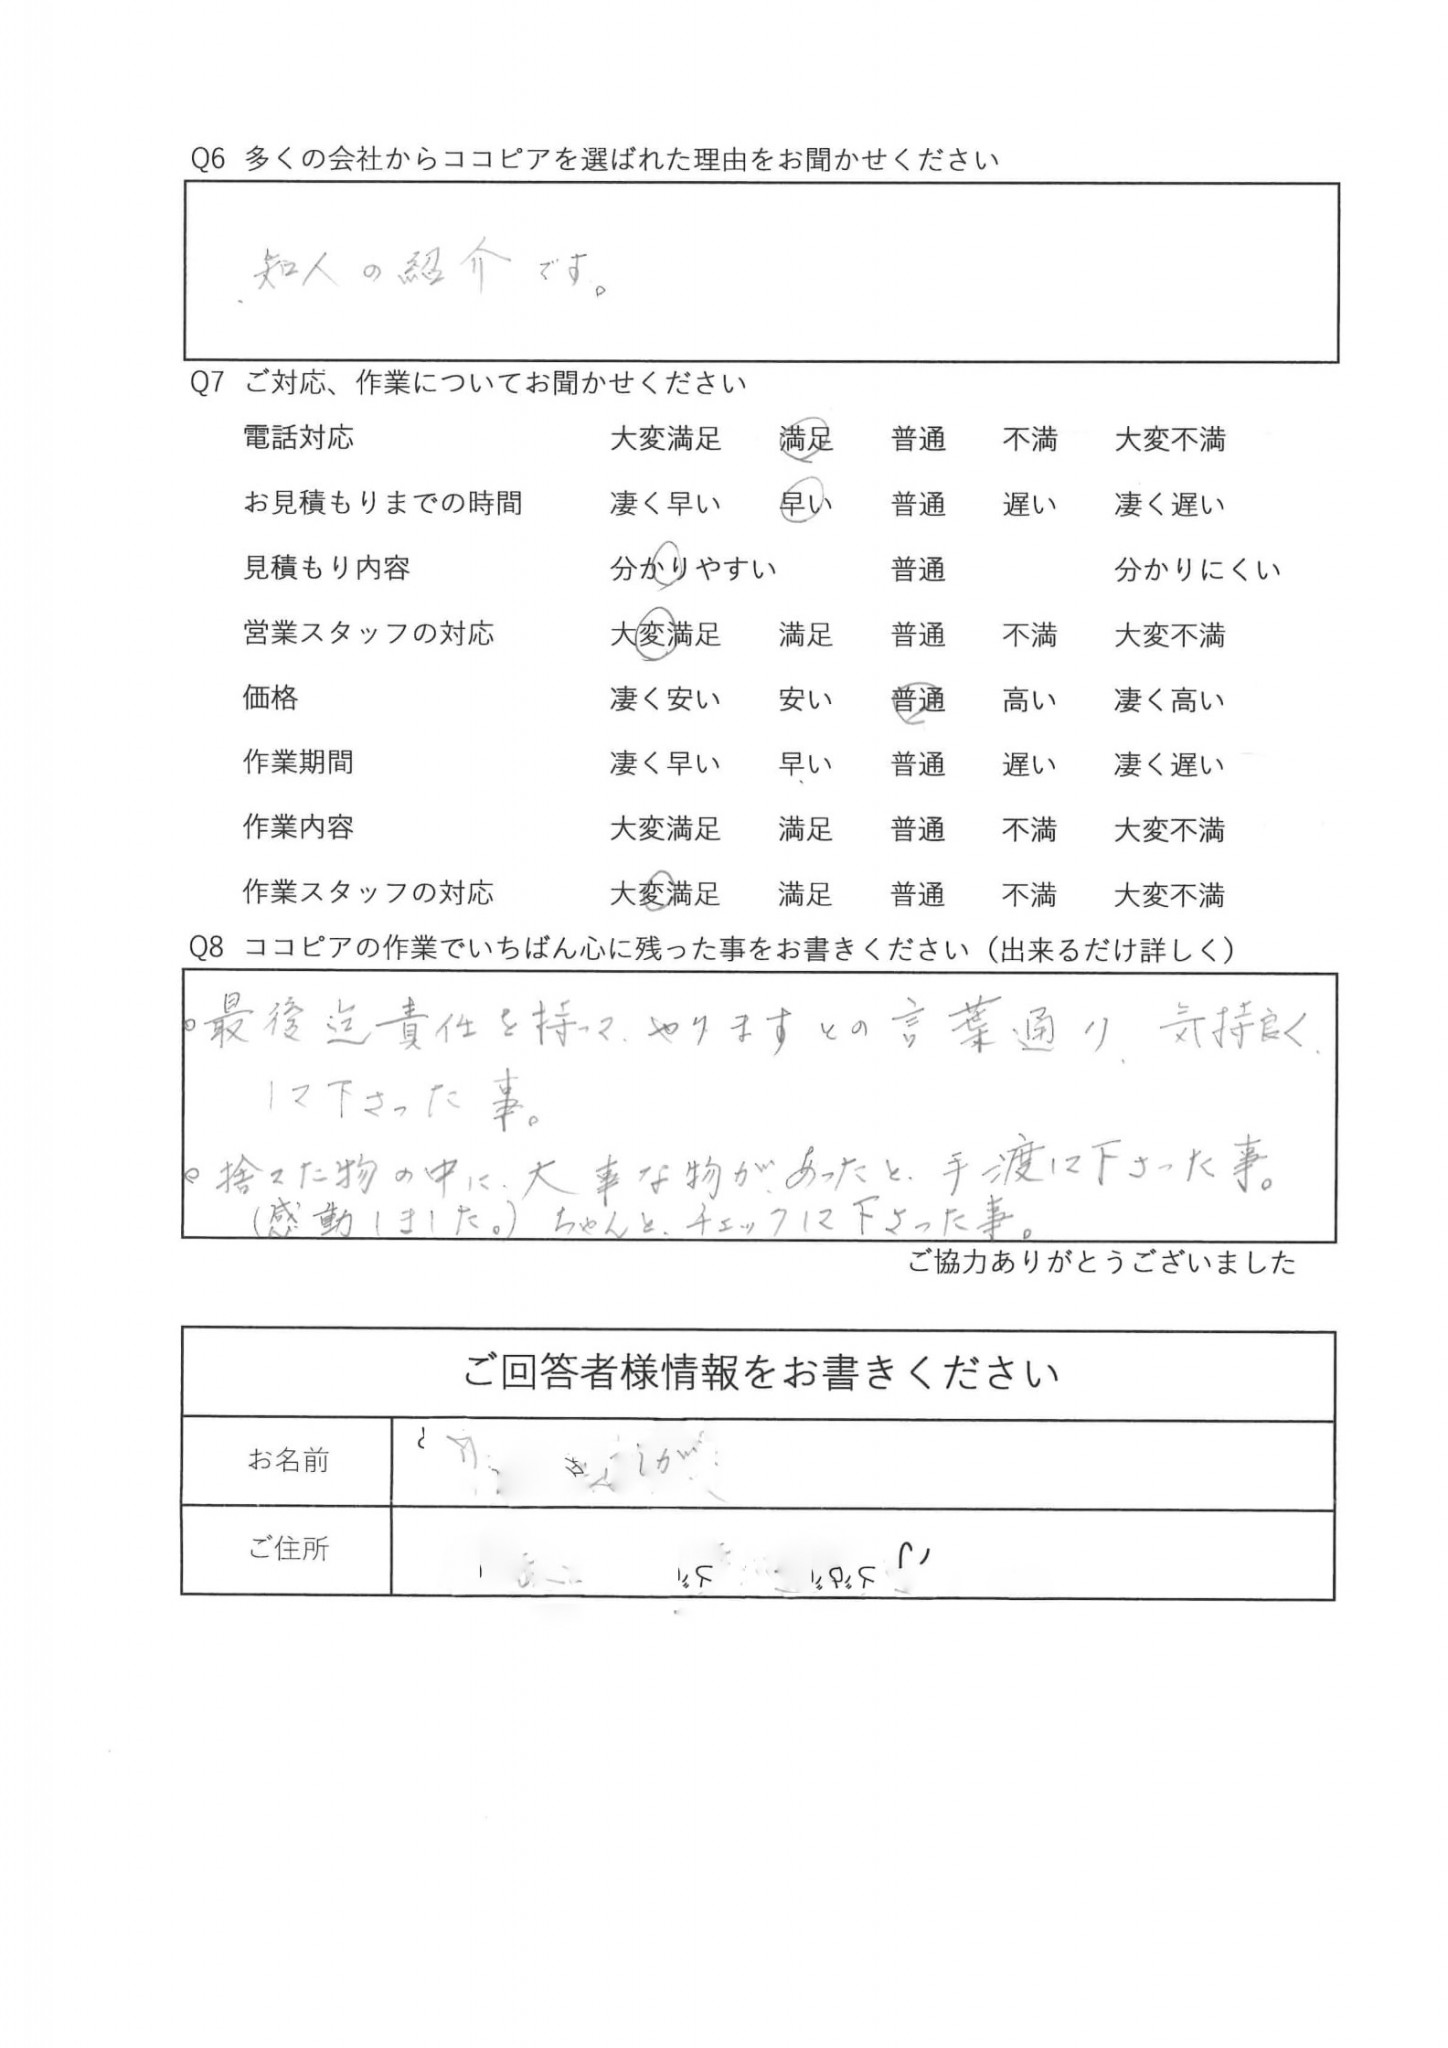 Q6 多くの会社からココピアを選ばれた理由をお聞かせください
知人の紹介です。
Q7 ご対応、作業についてお聞かせください
電話対応 大変満足 満足 普通 不満 大変不満
お見積もりまでの時間 凄く早い 早い 普通 遅い 凄く遅い
見積もり内容 分かりやすい 普通 分かりにくい
営業スタッフの対応 大変満足 満足 普通 不満 大変不満
価格 凄く安い 安い 普通 高い 凄く高い
作業期間 凄く早い 早い 普通 遅い 凄く遅い
作業内容 大変満足 満足 普通 不満 大変不満
作業スタッフの対応 大変満足 満足 普通 不満 大変不満
Q8 ココピアの作業でいちばん心に残った事をお書きください（出来るだけ詳しく）
○最後迄責任を持って、やりますとの言葉通り、気持良く、
して下さった事。
○捨てた物の中に、大事な物が、あったと、手渡して下さった事。
(感動しました。) ちゃんと、チェックして下さった事。
ご協力ありがとうございました
ご回答者様情報をお書きください
お名前
ご住所